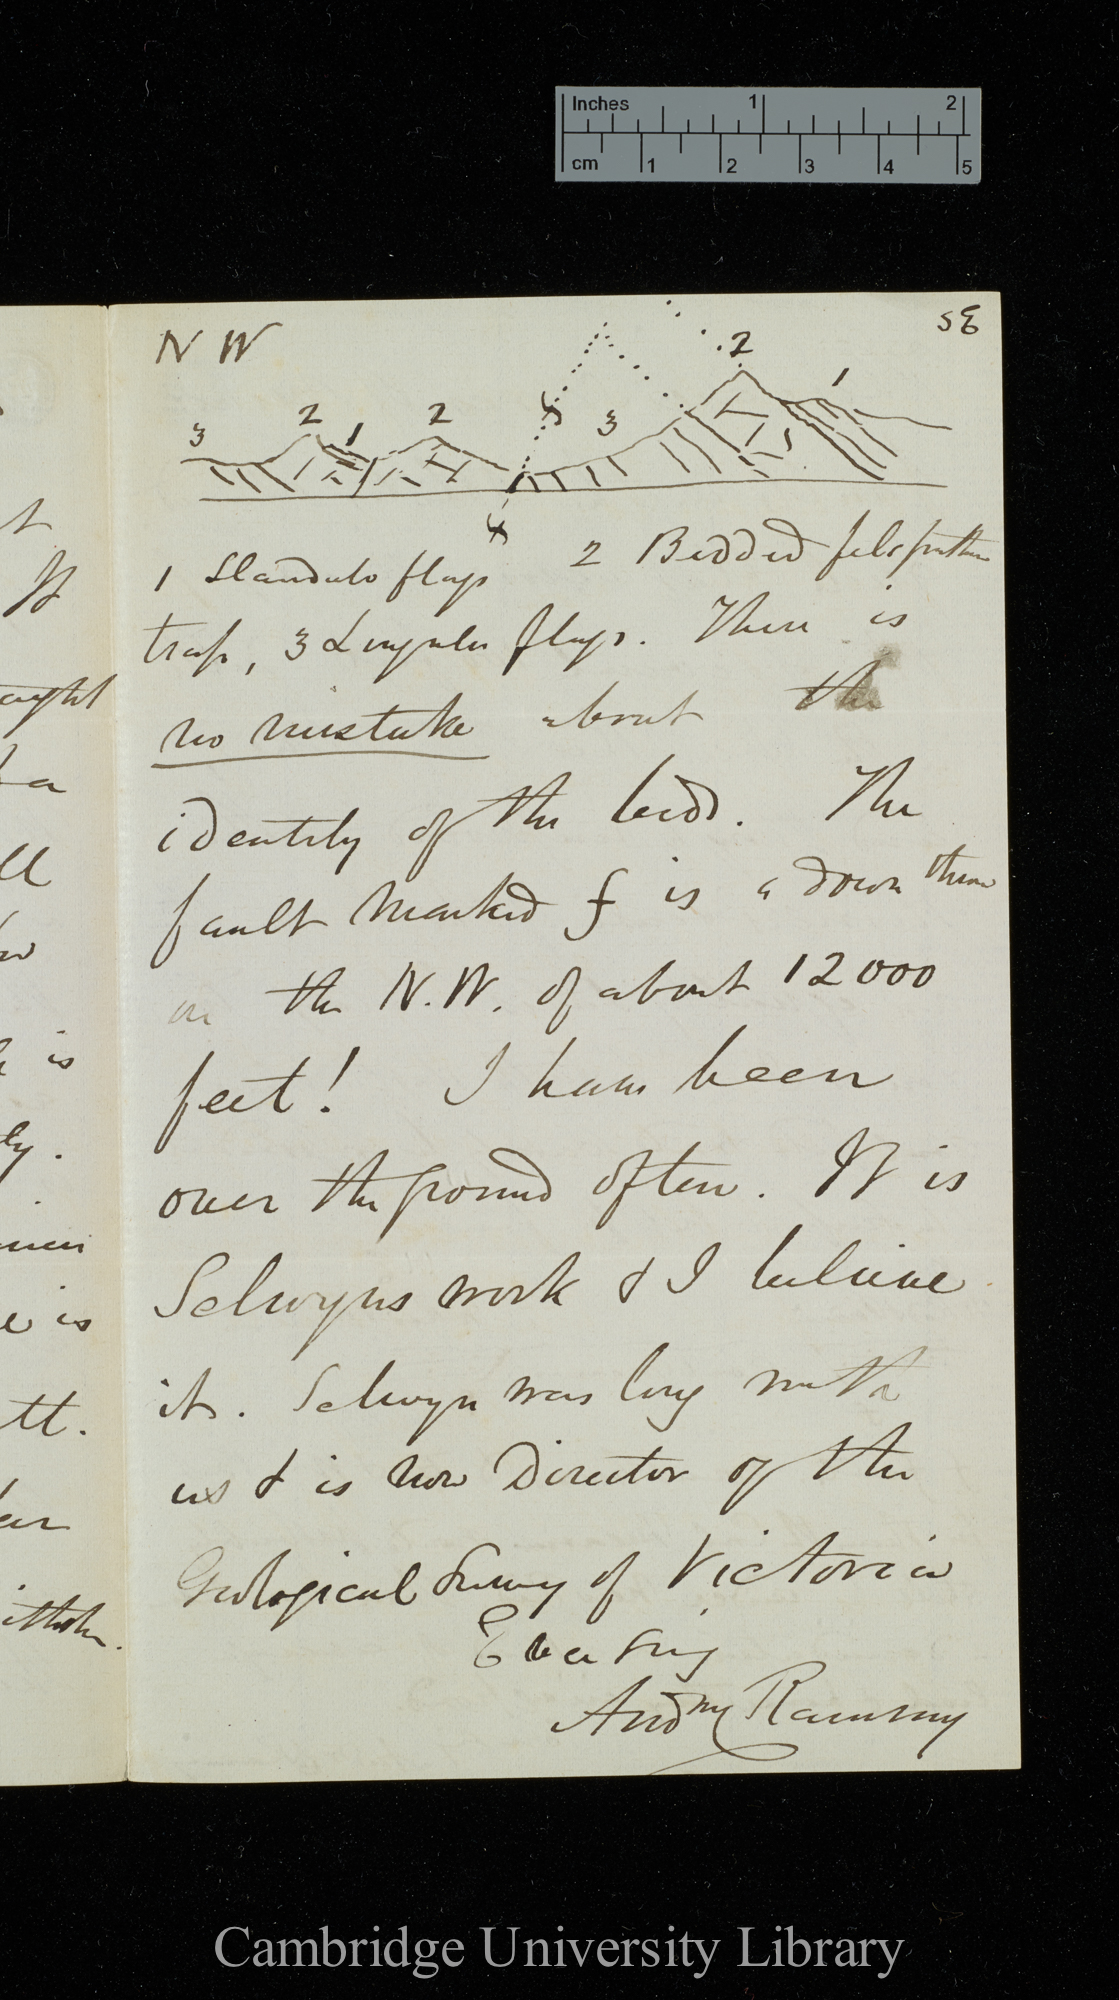 Inches 1 2
cm 1 2 3 4 5
N W
SE
3 2 1 2 f 3 2 1
f
1 Llandeilo flags 2 Bedded felspathic
trap, 3 Lingula flags. There is
no mistake about the
identity of the beds. The
fault marked f is a down throw
on the N.W. of about 12000
feet! I have been
over the ground often. It is
Selwyns work & I believe
it. Selwyn was long with
us & is now Director of the
Geological Survey of Victoria
Ever sinly
Andw Ramsay
ught
ll
is
ly.
e is
tt.
Cambridge University Library